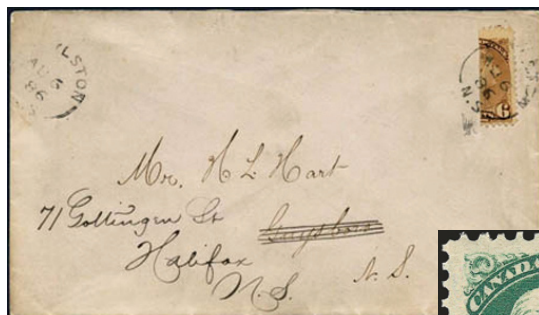 LSTON
AU 6
86
AU 6
86
N.S
Mr. H L Hart
71 Gottingen St Guysboro
Halifax
N.S.
N.S.
CANADA